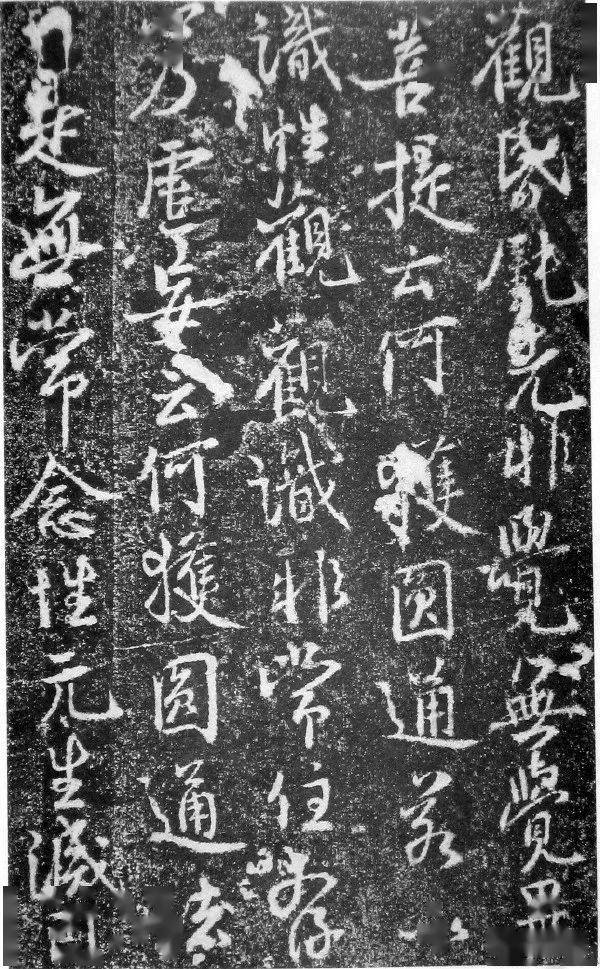 觀昏鈍先非覺無覺異
菩提云何獲圓通若以
識性觀觀識非常住存
乃虛妄云何獲圓通諸
行是無常念性元生滅